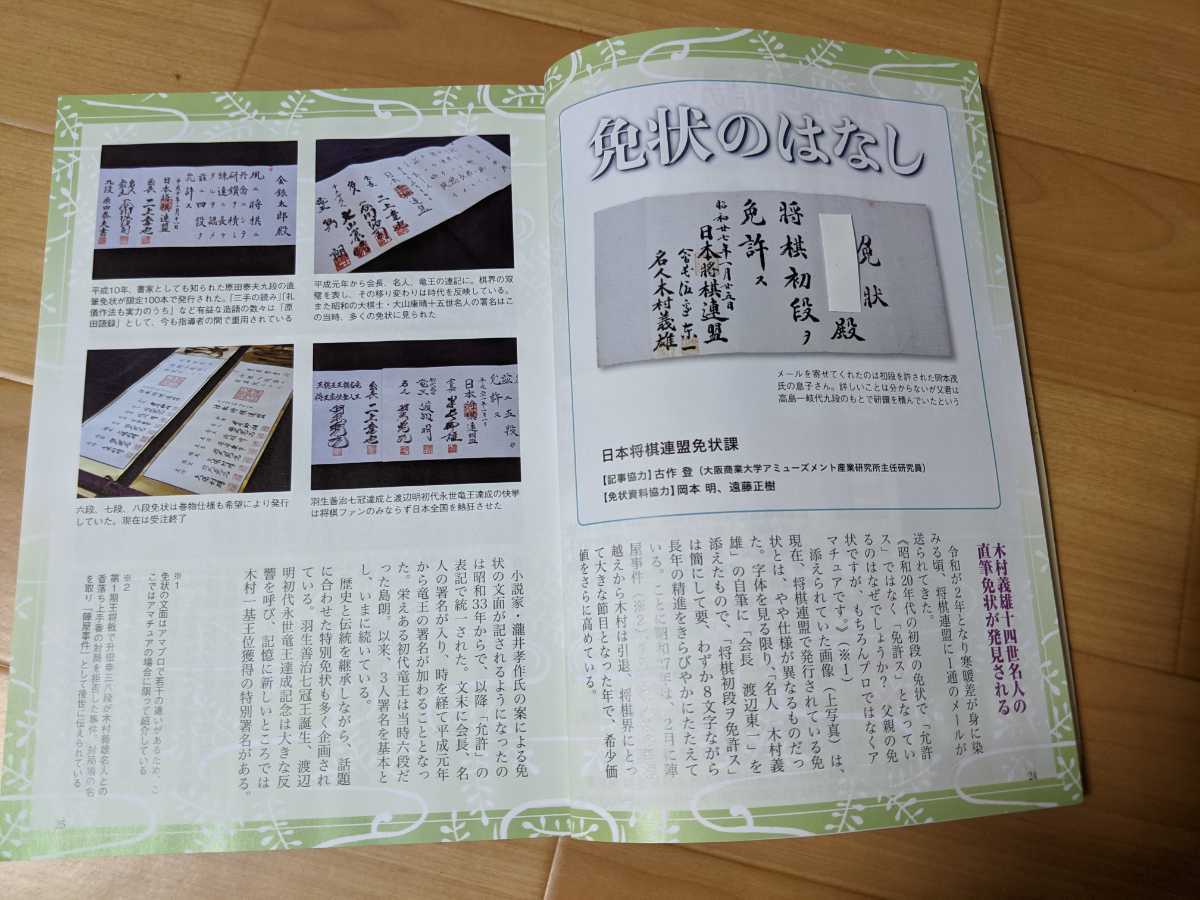 免状のはなし
免状
殿
将棋初段ヲ
免許ス
昭和廿七年八月廿五日
日本将棋連盟
名人木村義雄
メールを寄せてくれたのは初段を許された岡本茂
氏の息子さん。詳しいことは分からないが父君は
高島一岐代九段のもとで研鑽を積んでいたという
日本将棋連盟免状課
【記事協力】古作 登（大阪商業大学アミューズメント産業研究所主任研究員）
【免状資料協力】岡本 明、遠藤正樹
木村義雄十四世名人の
直筆免状が発見される
令和が2年となり寒暖差が身に染
みる頃、将棋連盟に1通のメールが
送られてきた。
《昭和20年代の初段の免状で「允許
ス」ではなく「免許ス」となってい
るのはなぜでしょうか？ 父親の免
状ですが、もちろんプロではなくア
マチュアです。》（※1）
添えられていた画像（上写真）は、
現在、将棋連盟で発行されている免
状とは、やや仕様が異なるものだっ
た。字体を見る限り、「名人 木村義
雄」の自筆に「会長 渡辺東一」を
添えたもので、「将棋初段ヲ免許ス」
は簡にして要、わずか8文字ながら
長年の精進をきらびやかにたたえて
いる。ことに昭和27年は、2月に陣
屋事件（※2）
越えから木村は引退、将棋界にとっ
て大きな節目となった年で、希少価
値をさらに高めている。
24
金銀太郎殿
夙ニ将棋ニ
丹念ニシテ
研鑽ヲ積ミ
四段ヲ
允許ス
日本将棋連盟
会長 二上達也
九段 原田泰夫
平成10年、書家としても知られた原田泰夫九段の直
筆免状が限定100本で発行された。「三手の読み」「礼
儀作法も実力のうち」など有益な造語の数々は「原
田語録」として、今も指導者の間で重用されている
平成元年から会長、名人、竜王の連記に。棋界の双
璧を表し、その移り変わりは時代を反映している。
また昭和の大棋士・大山康晴十五世名人の署名はこ
の当時、多くの免状に見られた
六段、七段、八段免状は巻物仕様も希望により発行
していた。現在は受注終了
五段ヲ
允許ス
日本将棋連盟
羽生善治七冠達成と渡辺明初代永世竜王達成の快挙
は将棋ファンのみならず日本全国を熱狂させた
小説家・瀧井孝作氏の案による免
状の文面が記されるようになったの
は昭和33年からで、以降「允許」の
表記で統一された。文末に会長、名
人の署名が入り、時を経て平成元年
から竜王の署名が加わることとなっ
た。栄えある初代竜王は当時六段だ
った島朗。以来、3人署名を基本と
し、いまに続いている。
歴史と伝統を継承しながら、話題
に合わせた特別免状も多く企画され
ている。羽生善治七冠王誕生、渡辺
明初代永世竜王達成記念は大きな反
響を呼び、記憶に新しいところでは
木村一基王位獲得の特別署名がある。
※1
免状の文面はアマプロで若干の違いがあるため、こ
こではアマチュアの場合に限って紹介している
※2
第1期王将戦で升田幸三八段が木村義雄名人との
香落ち上手番の対局を拒否した事件。対局場の名
を取り「陣屋事件」として後世に伝えられている
25